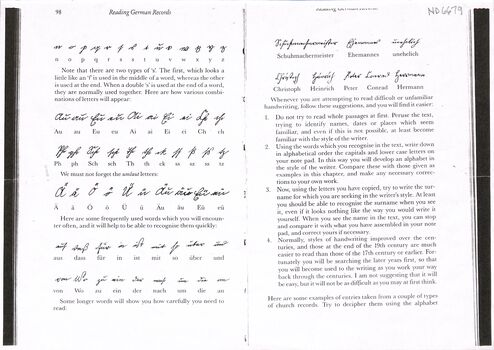 98 Reading German Records
n o p q r s s t u v w x y z
Note that there are two types of 's'. The first, which looks a
little like an 'f' is used in the middle of a word, whereas the other
is used at the end. When a double 's' is used at the end of a word,
they are normally used together. Here are how various combi-
nations of letters will appear:
Au au Eu eu Ai ai Ei ei Ch ch
Pf ph Sch sch Th th ck ss st sz tz
We must not forget the umlaut letters:
Ä ä Ö ö Ü ü Äu äu Eü eü
Here are some frequently used words which you will encoun-
ter often, and it will help to be able to recognise them quickly:
auf daß für in ist mit so über und
auf dass für in ist mit so über und
von Wo zu ein der nach um die an
von Wo zu ein der nach um die an
Some longer words will show you how carefully you need to
read:
Reading German Records
ND6679
Schuhmachermeister Ehemannes unehlich
Schuhmachermeister Ehemannes unehelich
Christoph Heinrich Peter Conrad Hermann
Christoph Heinrich Peter Conrad Hermann
Whenever you are attempting to read difficult or unfamiliar
handwriting, follow these suggestions, and you will find it easier:
1. Do not try to read whole passages at first. Peruse the text,
trying to identify names, dates or places which seem
familiar, and even if this is not possible, at least become
familiar with the style of the writer.
2. Using the words which you recognise in the text, write down
in alphabetical order the capitals and lower case letters on
your note pad. In this way you will develop an alphabet in
the style of the writer. Compare these with those given as
examples in this chapter, and make any necessary correc-
tions to your own work.
3. Now, using the letters you have copied, try to write the sur-
name for which you are seeking in the writer's style. At least
you should be able to recognise the surname when you see
it, even if it looks nothing like the way you would write it
yourself. When you see the name in the text, you can stop
and compare it with what you have assembled in your note
pad, and correct yours if necessary.
4. Normally, styles of handwriting improved over the cen-
turies, and those at the end of the 19th century are much
easier to read than those of the 17th century or earlier. For-
tunately you will be searching the later years first, so that
you will become used to the writing as you work your way
back through the centuries. I am not suggesting that it will
be easy, but it will not be as difficult as you may at first think.
Here are some examples of entries taken from a couple of types
of church records. Try to decipher them using the alphabet